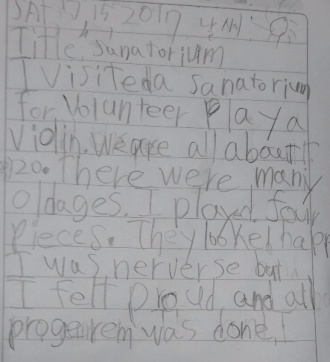 SAT 17, 15 2017 날씨:
Title: Sanatorium
I visited a sanatorium
for Volunteer Play a
violin. We are all about
20. There were many
oldages. I played four
pieces. They looked happ
I was nerverse but
I felt proud and all
progeurem was done!